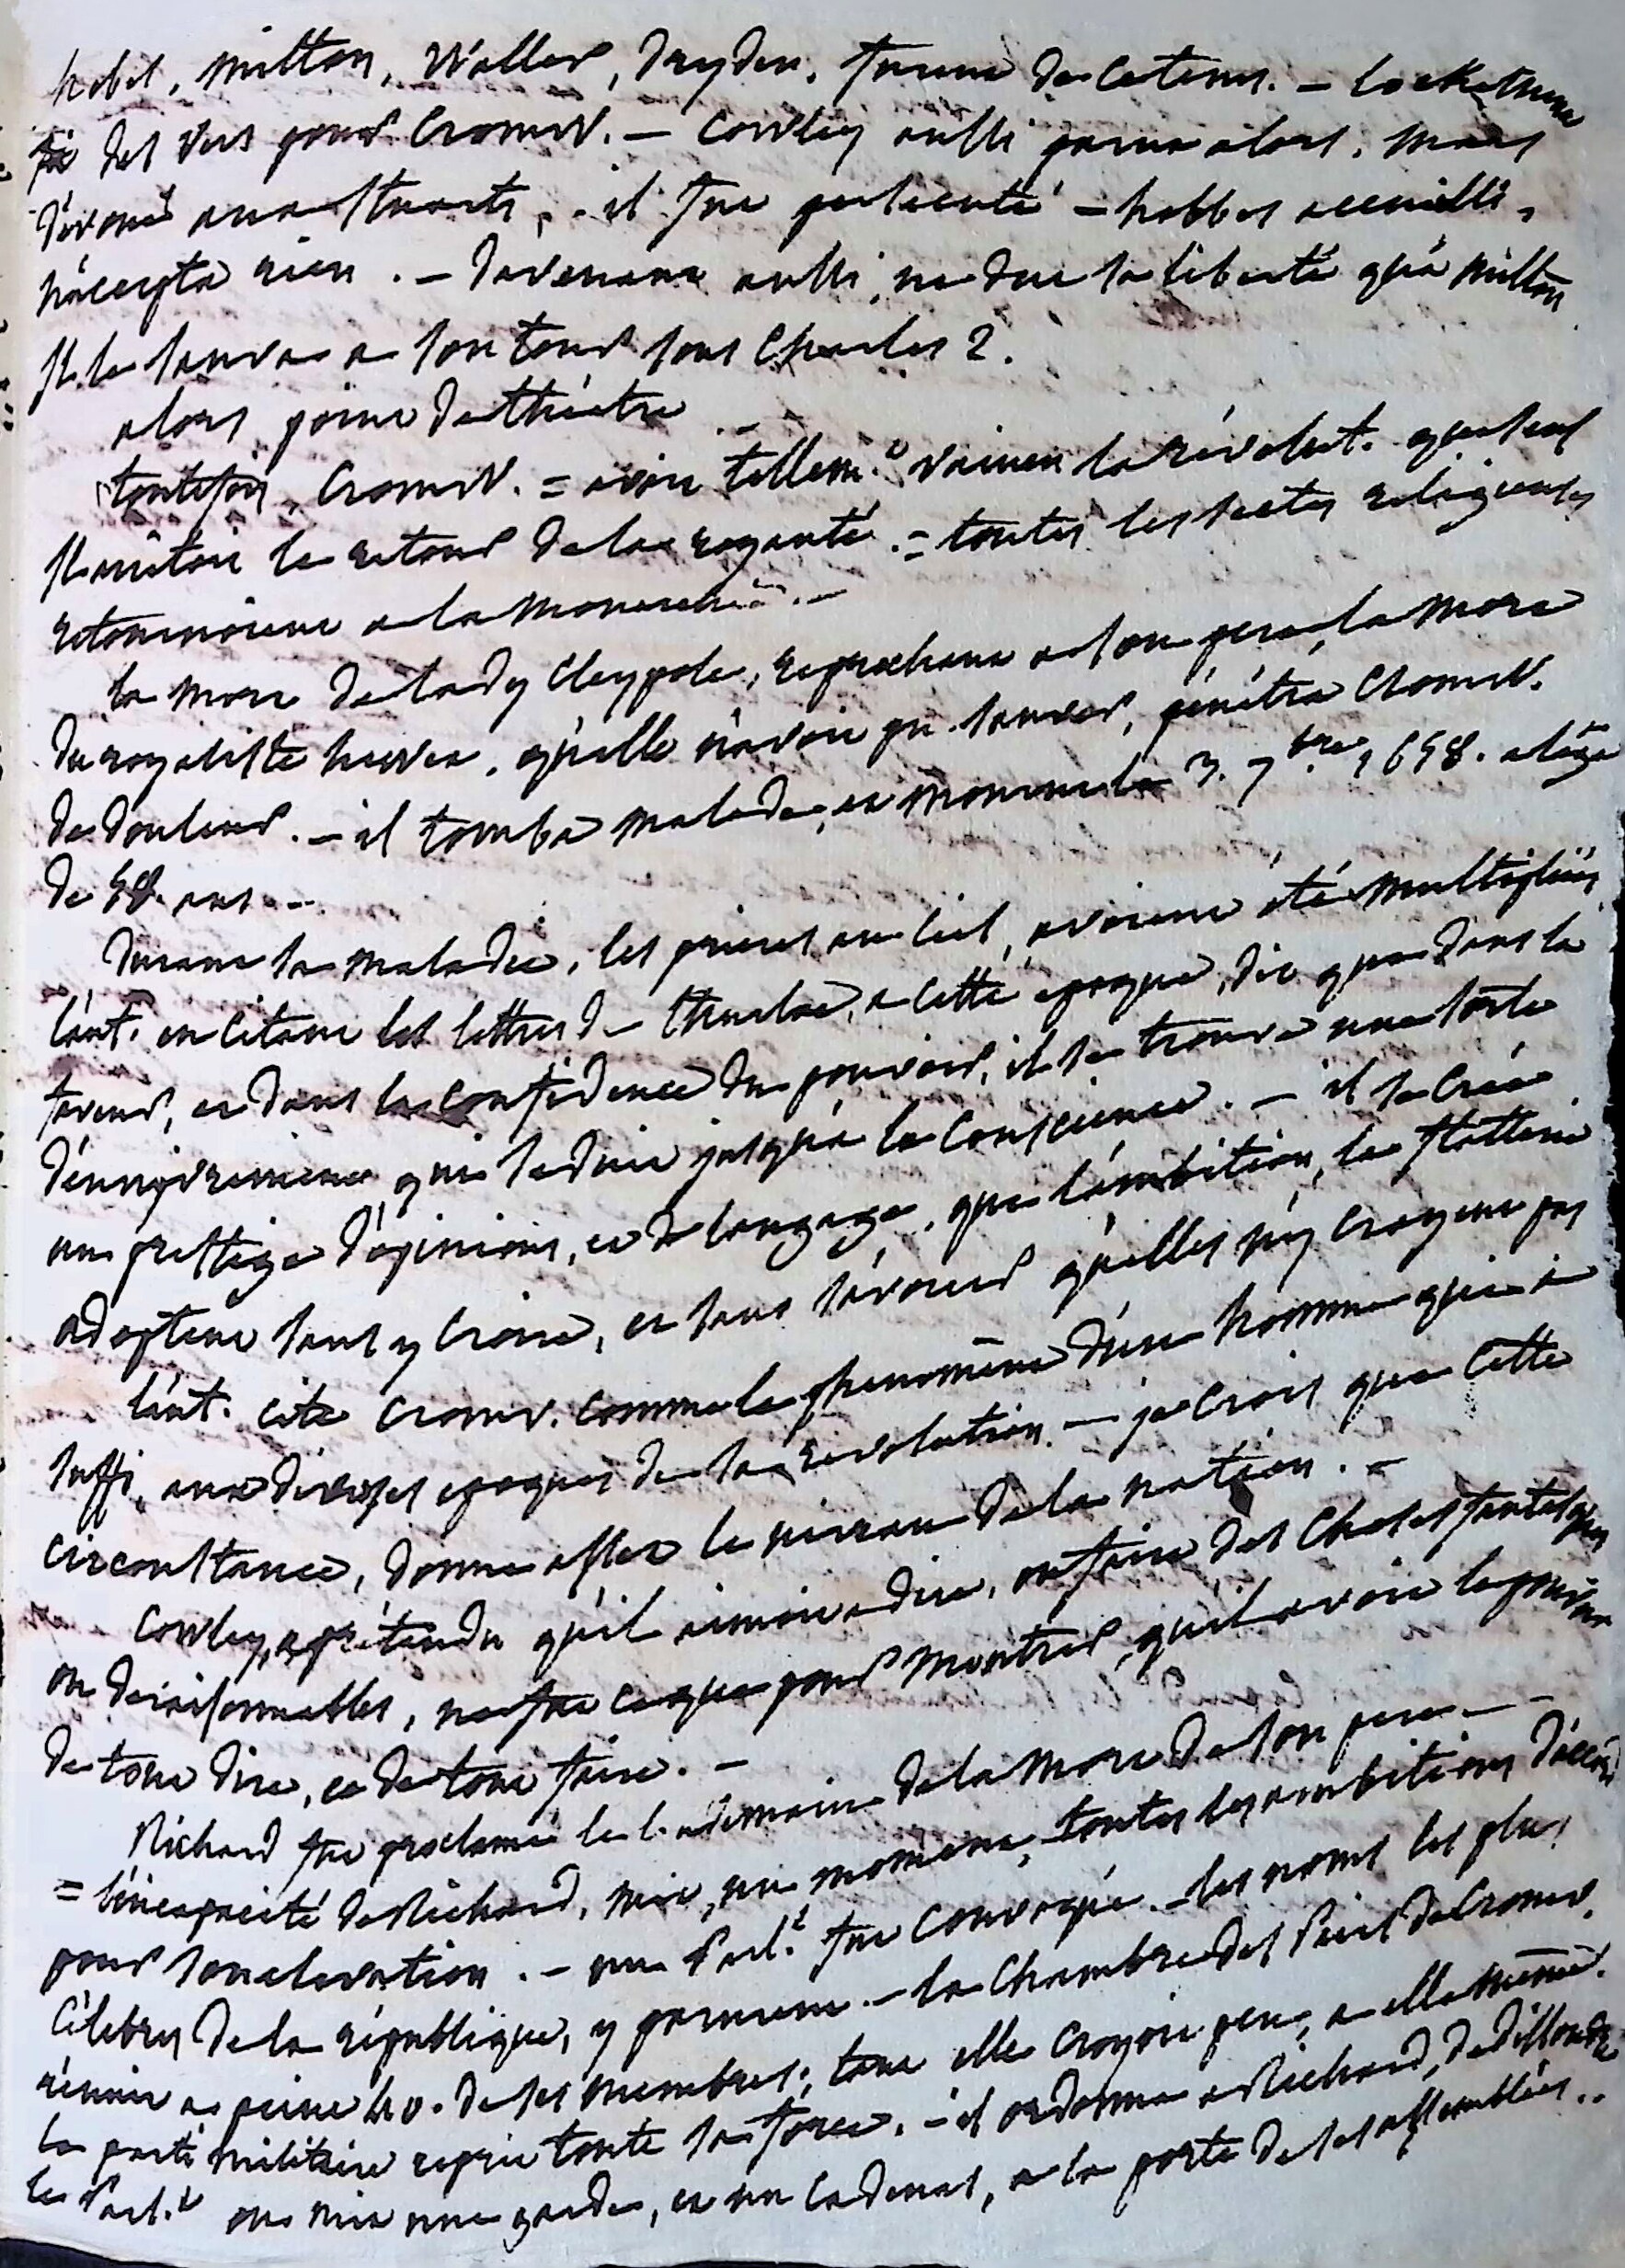 hobes, Milton, Waller, Dryden, furent de ce tems. — Locke même
fit des vers pour Cromw. — Cowley aussi parut alors. mais
dévoué aux Stuarts, il fut persécuté — hobbes accueilli,
n'accepta rien. — Davenant aussi, ne dut sa liberté qu'à Milton
Il le sauva a son tour sous Charles 2.
alors point de théatre
toutefois, Cromw. = avoit tellem.t vaincu la révolut. que seul
il arrêtoit le retour de la royauté. = toutes les sectes religieuses
retournoient a la monarchie. —
la mort de lady Cleypole, reprochant a son pere, la mort
du royaliste hewet, qu'elle n'avoit pu sauver, pénétra Cromw.
de douleur. — il tomba malade, et mourut le 3. 7bre 1658. a l'age
de 58 ans. —
Durant sa maladie, les prieres au ciel, avoient été multipliées
l'aut. en citant les lettres de Thurloe, a cette epoque, dit que dans la
faveur, et dans la confidence du pouvoir, il se trouve une sorte
d'ennyvrement qui séduit jusqu'a la conscience. — il se crée
un prestige d'opinions, et de langage, que l'ambition, la flatterie
adoptent sans y croire, et sans s'avouer qu'elles n'y croyent pas
l'aut. cite Cromw. comme le phenomène d'un homme qui a
suffi, aux diverses epoques de sa revolution. — je crois que cette
circonstance, donne assez le niveau de la nation. —
Cowley, a prétendu qu'il aimoit a dire, ou faire des choses fantasques
ou deraisonnables, ne fut ce que pour montrer, qu'il avoit le pouvoir
de tout dire, et de tout faire. —
Richard fut proclamé le lendemain de la mort de son pere —
= l'incapacité de Richard, mit, un moment, toutes les ambitions d'accord
pour son elevation. — un Parl.t fut convoqué. — les noms les plus
célebres de la république, y parurent. — la chambre des Pairs de Cromw.
réunit a peine 40. de ses membres; tant elle croyoit peu, a elle même.
le parti militaire reprit toute sa force. — il ordonna a Richard, de dissoudre
le Parl.t on mit une garde, et un cadenat, a la porte de ses assemblées. .